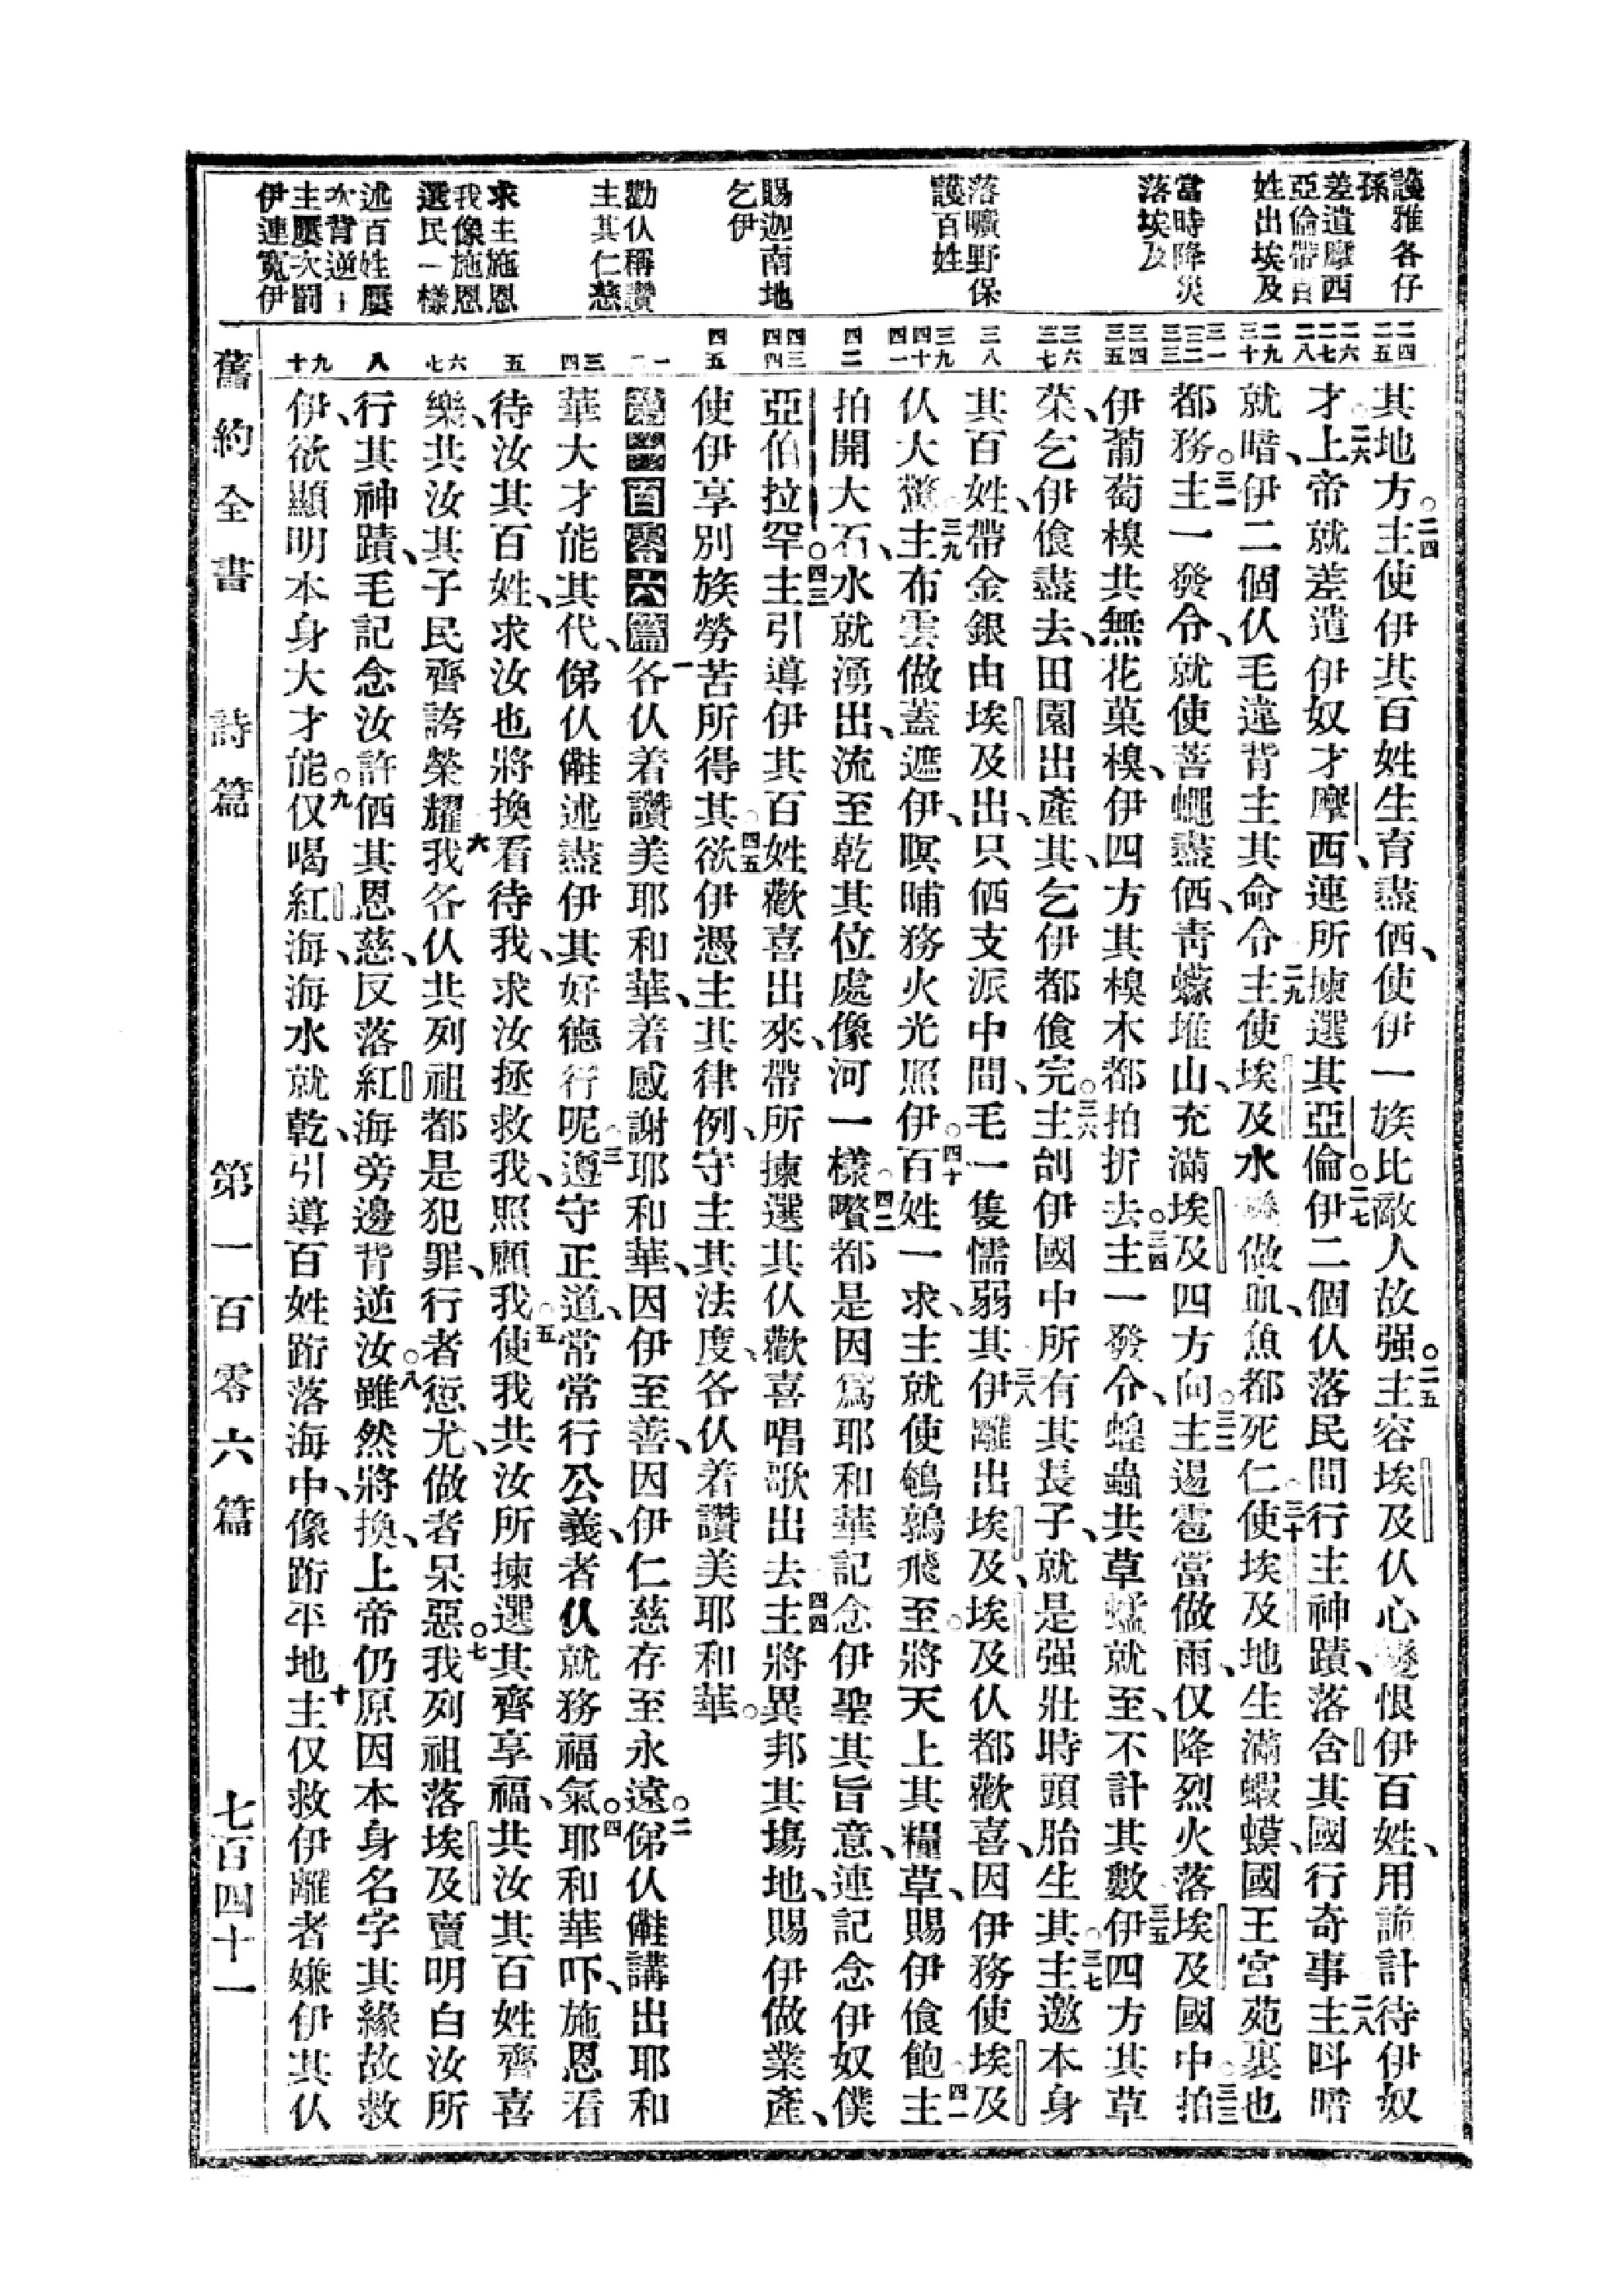 護雅各仔
孫
差遣摩西
亞倫帶百
姓出埃及
當時降災
落埃及
落曠野保
護百姓
賜迦南地
乞伊
勸仈稱讚
主其仁慈
求主施恩
我像施恩
選民一樣
述百姓屢
次背逆
主屢次罰
伊連寬伊
二四
二五
二六
二七
二八
二九
三十
三一
三二
三三
三四
三五
三六
三七
三八
三九
四十
四一
四二
四三
四四
四五
一
二
三
四
五
六
七
八
九
十
其地方。二四主使伊其百姓生育盡価、使伊一族比敵人故强。二五主容埃及仈心變恨伊百姓、用詭計待伊奴
才、二六上帝就差遣伊奴才摩西、連所揀選其亞倫。二七伊二個仈落民間行主神蹟、落含其國行奇事二八主呌暗
就暗、伊二個仈毛違背主其命令二九主使埃及水變做血、魚都死仁三十使埃及地生滿蝦蟆、國王宮苑裏也
都務。三一主一發令、就使菩蠅盡価、靑蠓堆山、充滿埃及四方向。三二主逷雹當做雨、仅降烈火落埃及國中。三三拍
伊葡萄模共無花菓模、伊四方其模木都拍折去。三四主一發令、蝗蟲共草蜢就至、不計其數三五伊四方其草
菜、乞伊飡盡去、田園出產其、乞伊都飡完。三六主刣伊國中所有其長子、就是强壯時頭胎生其。三七主邀本身
其百姓、帶金銀由埃及出、只価支派中間、毛一隻懦弱其三八伊離出埃及、埃及仈都歡喜、因伊務使埃及
仈大驚。三九主布雲做蓋遮伊、暝晡務火光照伊。四十百姓一求、主就使鵪鶉飛至。將天上其糧草、賜伊飡飽。四一主
拍開大石、水就湧出、流至乾其位處、像河一樣。四二賷都是因爲耶和華記念伊聖其旨意、連記念伊奴僕
亞伯拉罕。四三主引導伊其百姓歡喜出來、帶所揀選其仈歡喜唱歌出去四四主將異邦其塲地、賜伊做業產、
使伊享別族勞苦所得其。四五欲伊憑主其律例、守主其法度、各仈着讚美耶和華。
第一百零六篇一各仈着讚美耶和華、着感謝耶和華、因伊至善、因伊仁慈存至永遠。二俤仈㒕講出耶和
華大才能其代、俤仈㒕述盡伊其好德行呢。三遵守正道、常常行公義、者仈就務福氣。四耶和華吓、施恩看
待汝其百姓、求汝也將換看待我、求汝拯救我、照顧我。五使我共汝所揀選其齊享福、共汝其百姓齊喜
樂、共汝其子民齊誇榮耀六我各仈共列祖都是犯罪、行者愆尤、做者呆惡。七我列祖落埃及賣明白汝所
行其神蹟、毛記念汝許価其恩慈、反落紅海旁邊背逆汝。八雖然將換、上帝仍原因本身名字其緣故救
伊、欲顯明本身大才能。九仅喝紅海、海水就乾、引導百姓跡落海中、像跡平地十主仅救伊離者嫌伊其仈
舊約全書　詩篇　第一百零六篇　七百四十一